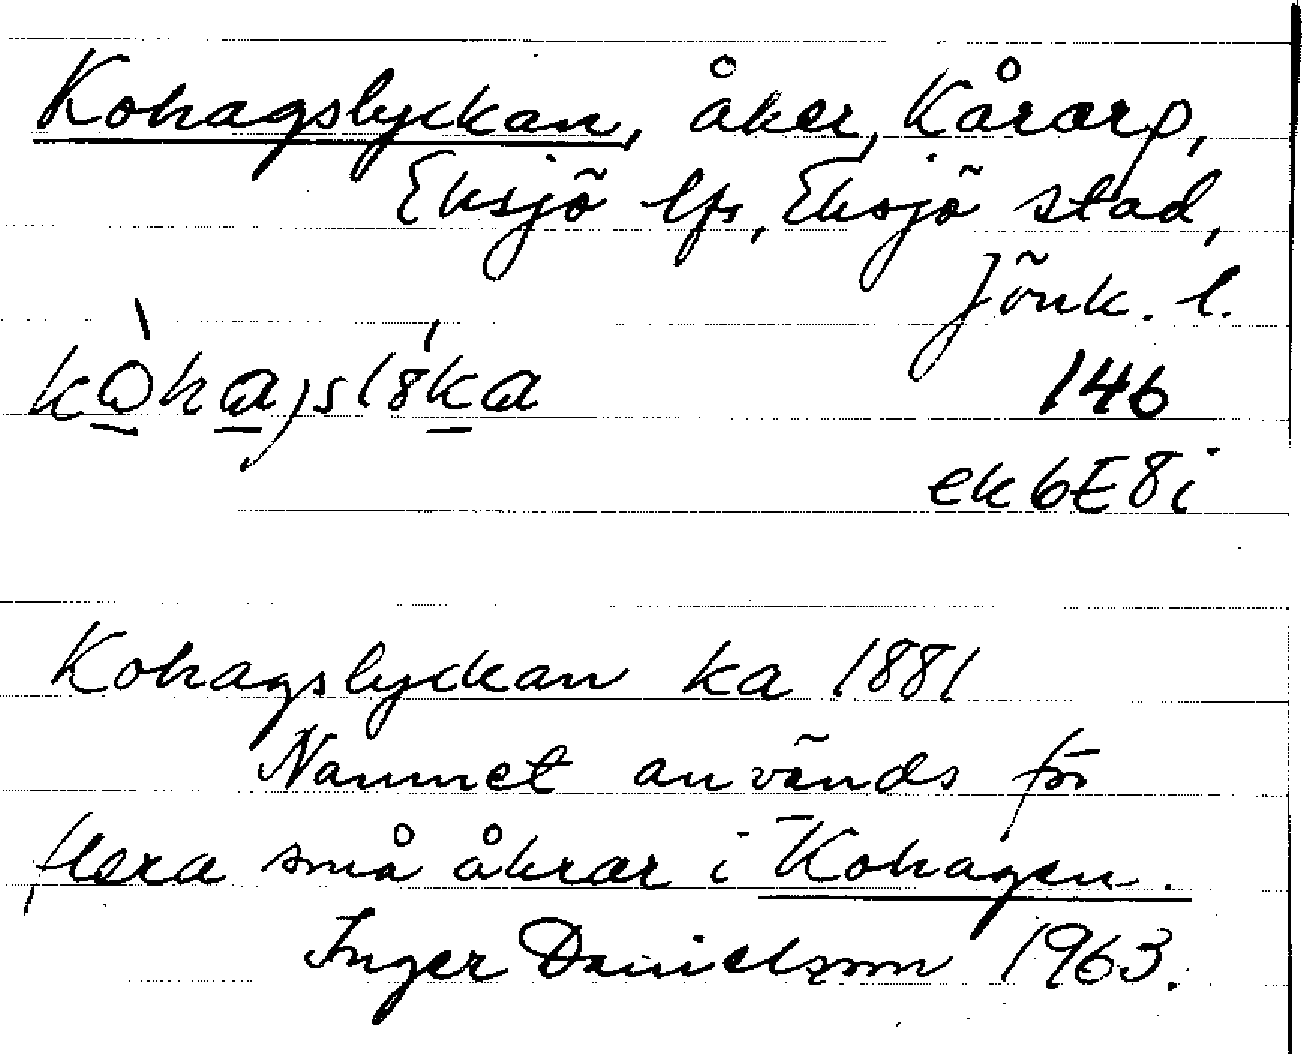 Kohagslyckan, åker, Kårarp,
Eksjö lfs, Eksjö stad,
Jönk. l.
146
ek 6E8i
Kohagslyckan ka 1881
Namnet används för
flera små åkrar i Kohagen.
Inger Danielsson 1963.